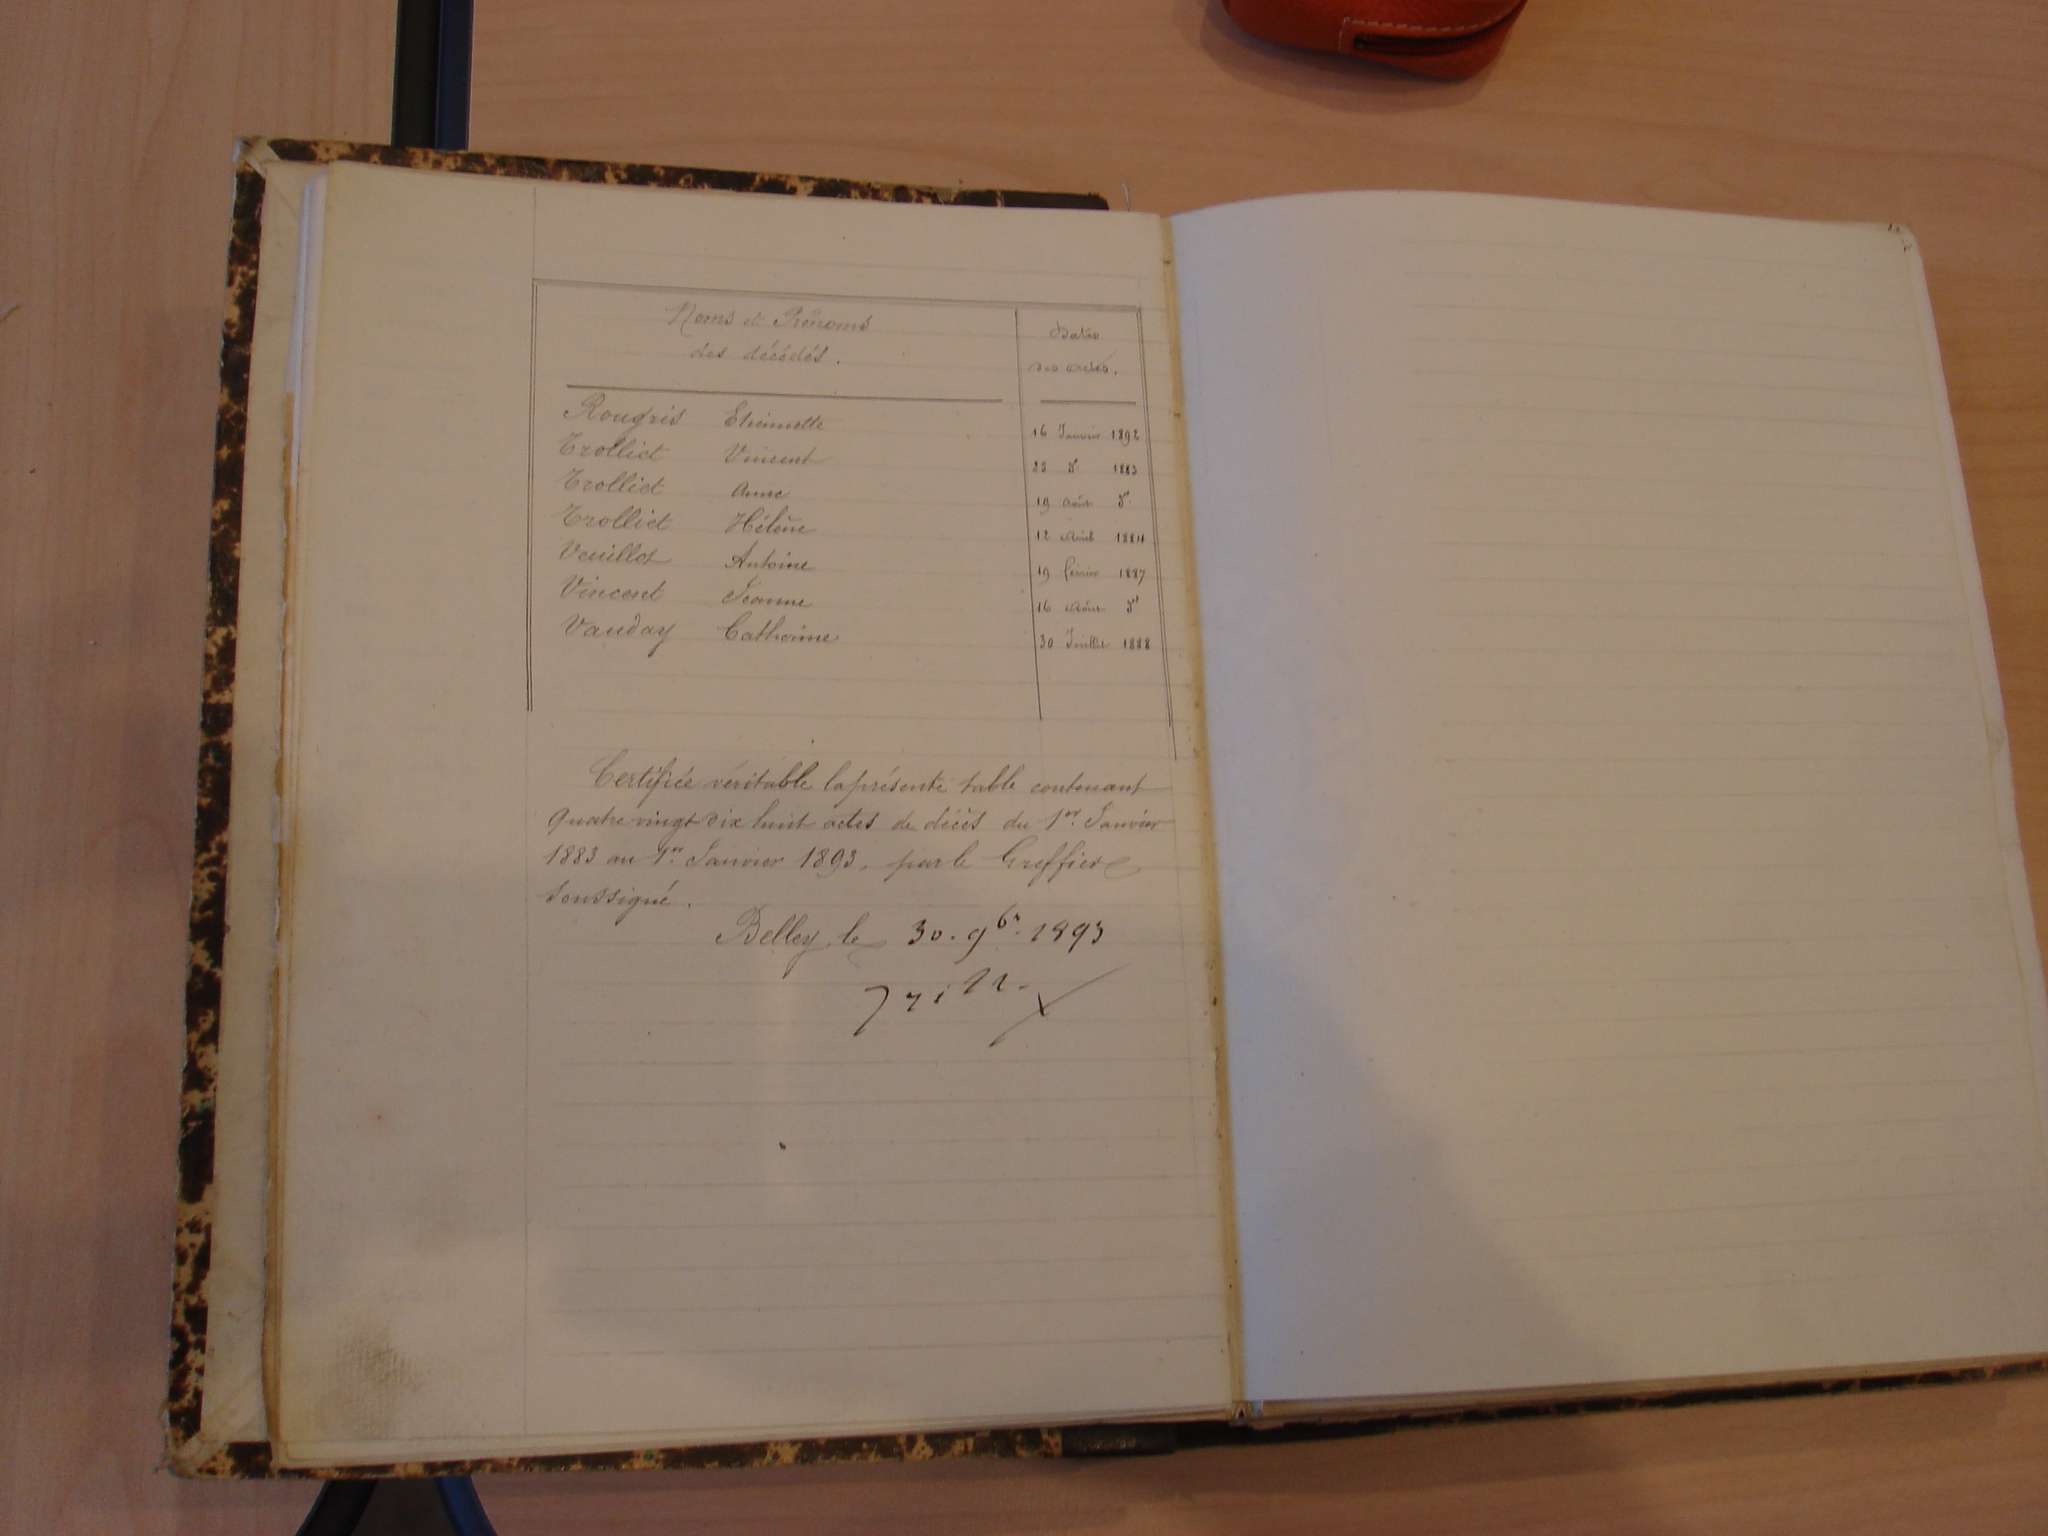 Noms et Prénoms
des décédés.
Dates
des actes.
Rougris Etiennette 16 Janvier 1892
Trolliet Vincent 23 d° 1883
Trolliet Anne 19 Août d°.
Trolliet Hélène 12 Août 1884
Veuillot Antoine 19 février 1887
Vincent Jeanne 16 Août d°
Vauday Catherine 30 Juillet 1888
Certifiée véritable la présente table contenant
quatre vingt dix huit actes de décès du 1er. Janvier
1883 au 1er. Janvier 1893, par le Greffier
soussigné.
Belley, le 30. 9br. 1893